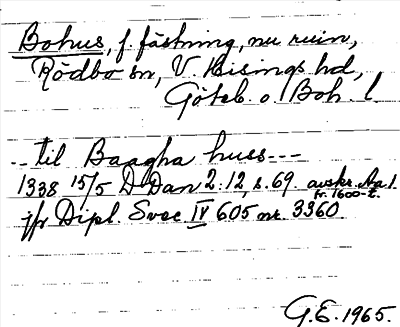 Bohus, f. fästning, nu ruin,
Rödbo sn, V. Hisings hd,
Göteb. o. Boh. l
-- til Baagha huss ---
1338 15/5 D Dan 2:12, s. 69. avskr. Aa 1.
fr. 1600-t.
jfr Dipl. Svec. IV 605 nr. 3360.
G.E. 1965.